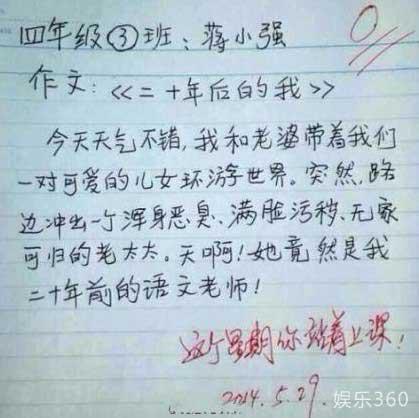 四年级③班：蒋小强
0
作文：《二十年后的我》
今天天气不错，我和老婆带着我们
一对可爱的儿女环游世界。突然，路
边冲出一个浑身恶臭、满脸污秽、无家
可归的老太太。天啊！她竟然是我
二十年前的语文老师！
这个星期你站着上课！
2014.5.29.
娱乐360